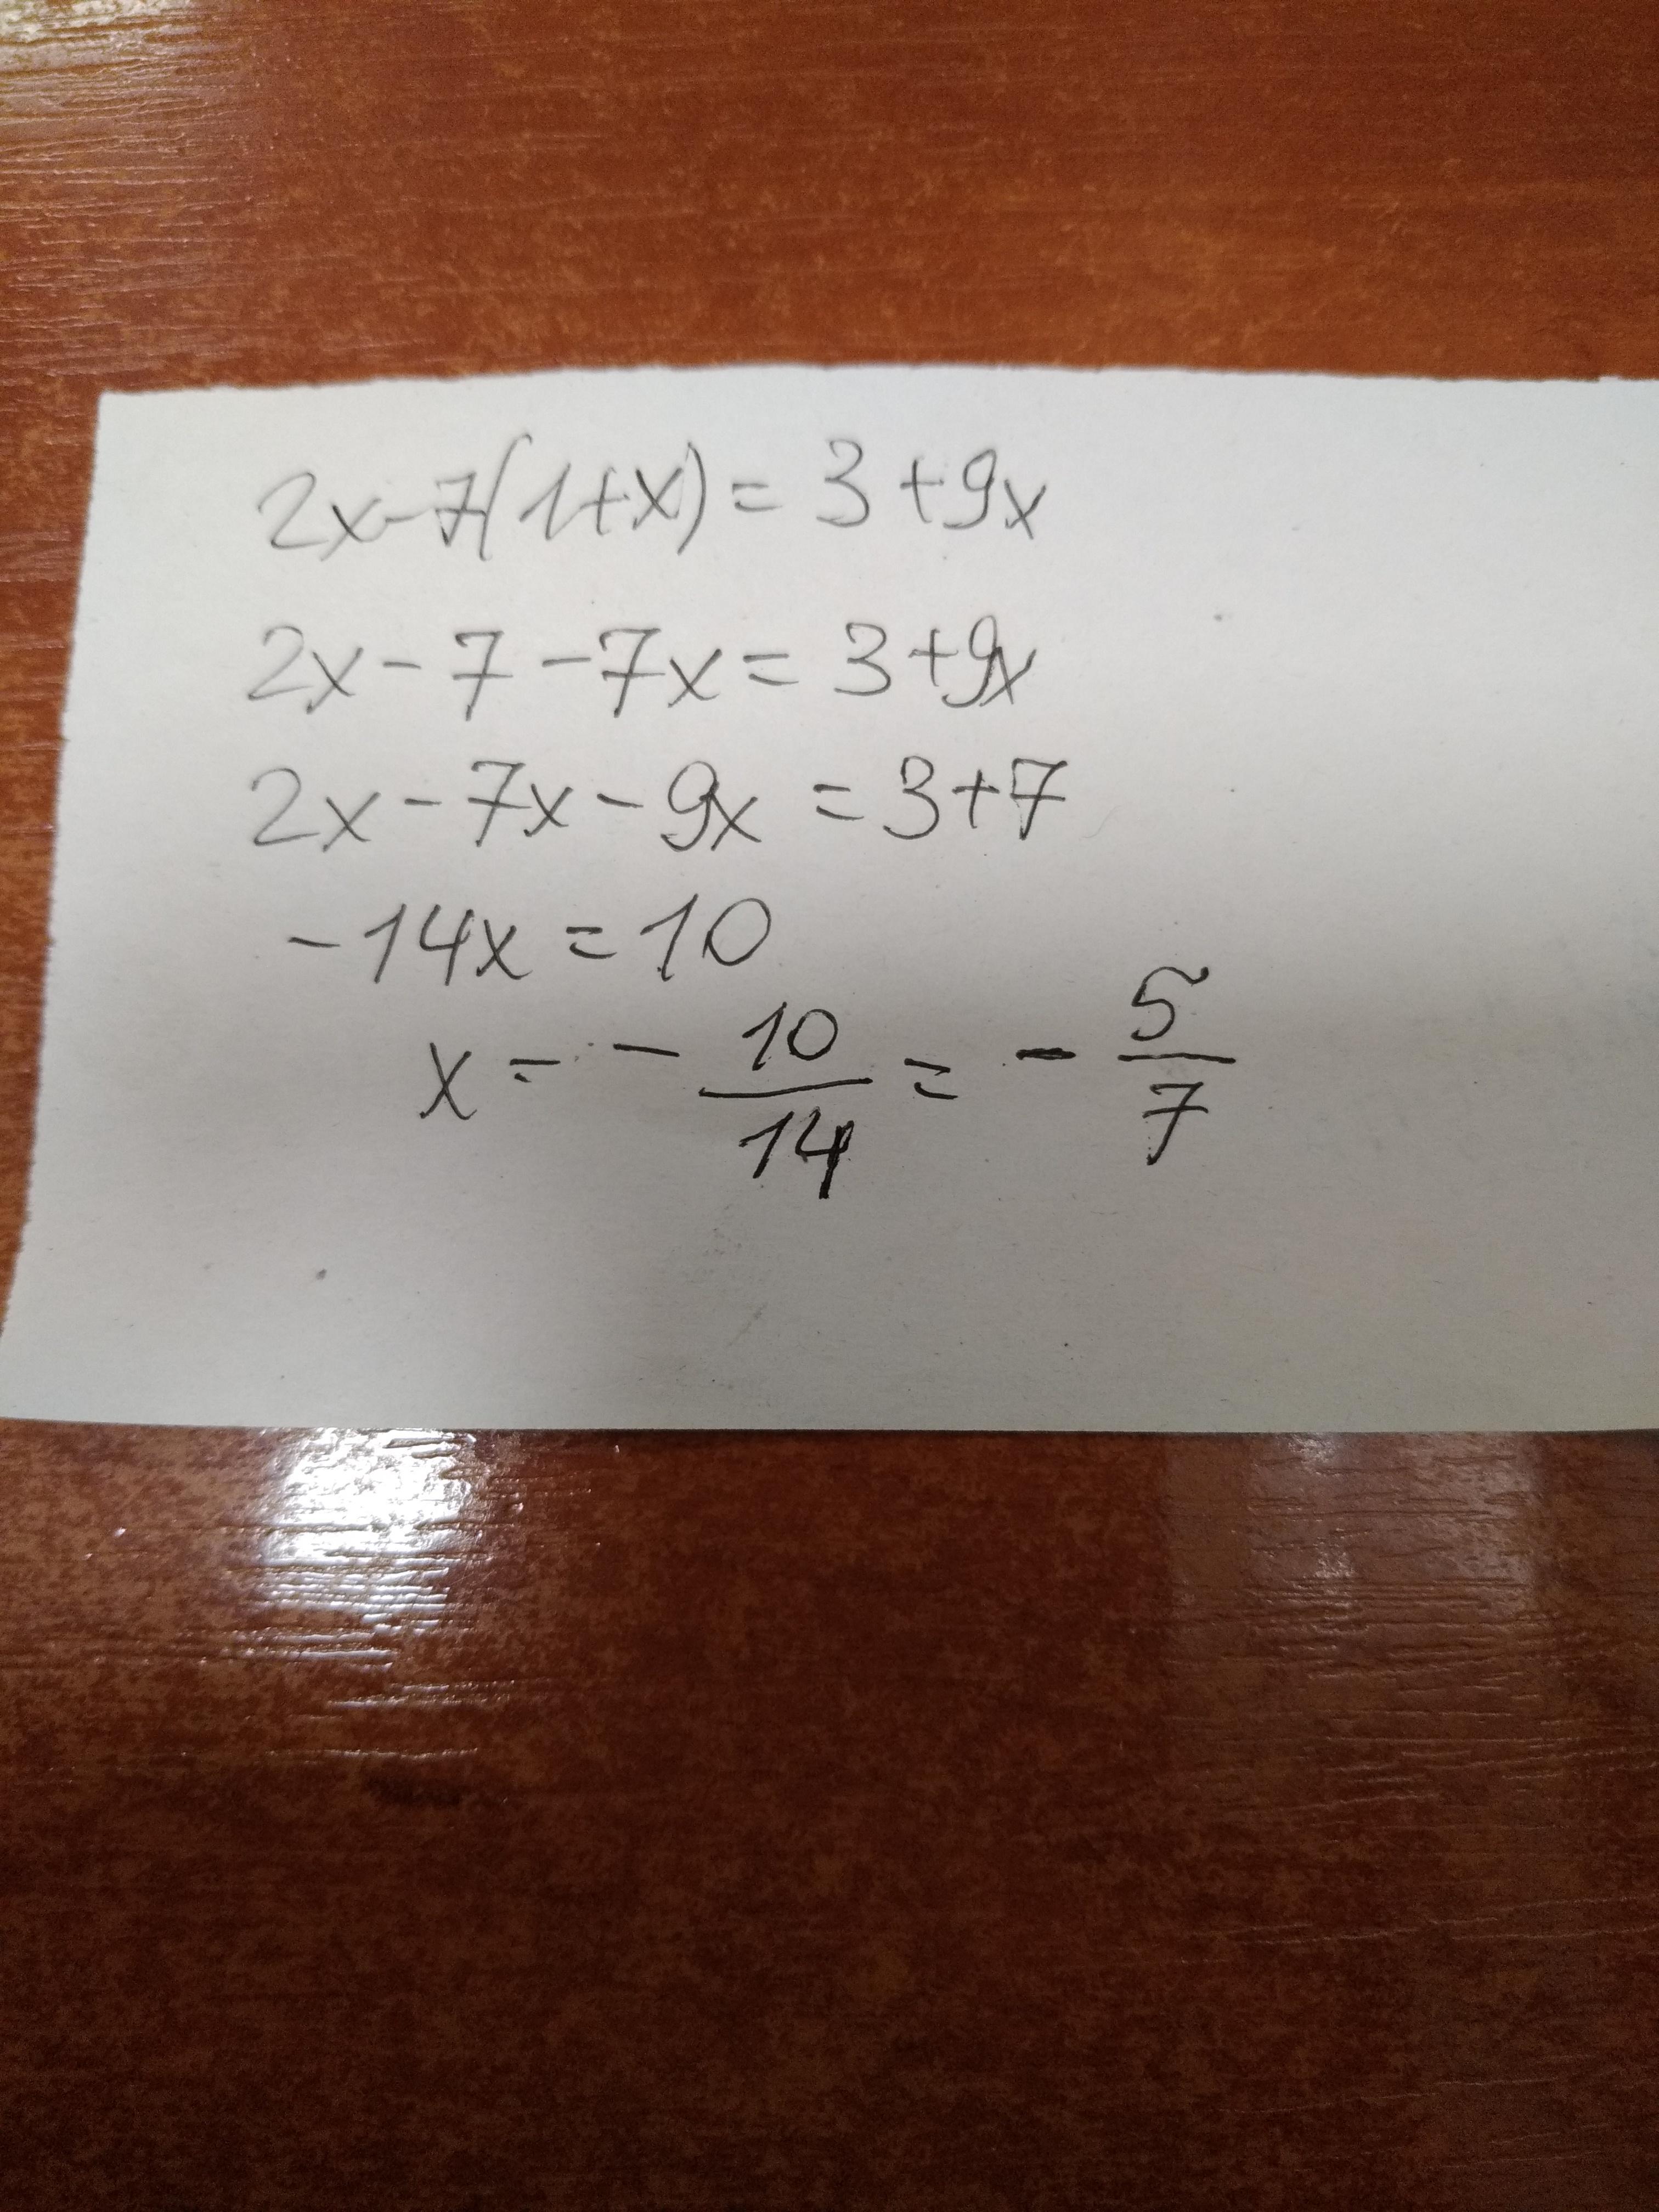 2x-7(1+x)=3+9x
2x-7-7x=3+9x
2x-7x-9x=3+7
-14x=10
x=-10/14=-5/7